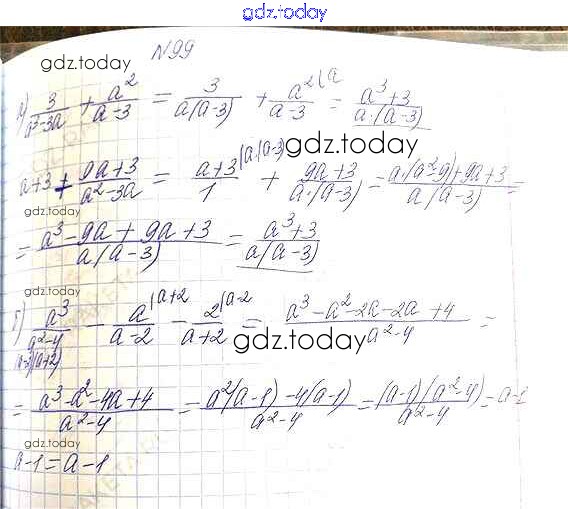 gdz.today
N99
gdz.today
а) 3/(a²-3a) + a²/(a-3) = 3/(a(a-3)) + a²(a/(a-3) = (a³+3)/(a·(a-3))
gdz.today
a+3+(9a+3)/(a²-3a) = (a+3)/1 (a·(a-3) + (9a+3)/(a·(a-3)) = (a·(a²-9)+9a+3)/(a(a-3)) =
gdz.today
= (a³-9a+9a+3)/(a(a-3)) = (a³+3)/(a(a-3))
gdz.today
б) a³/(a²-4) - a/(a-2) (a+2 - 2/(a+2) (a-2 = (a³-a²-2a-2a+4)/(a²-4) =
(a-2)(a+2)
gdz.today
= (a³-a²-4a+4)/(a²-4) = (a²(a-1)-4(a-1))/(a²-4) = ((a-1)(a²-4))/(a²-4) = a-1
gdz.today
a-1=a-1